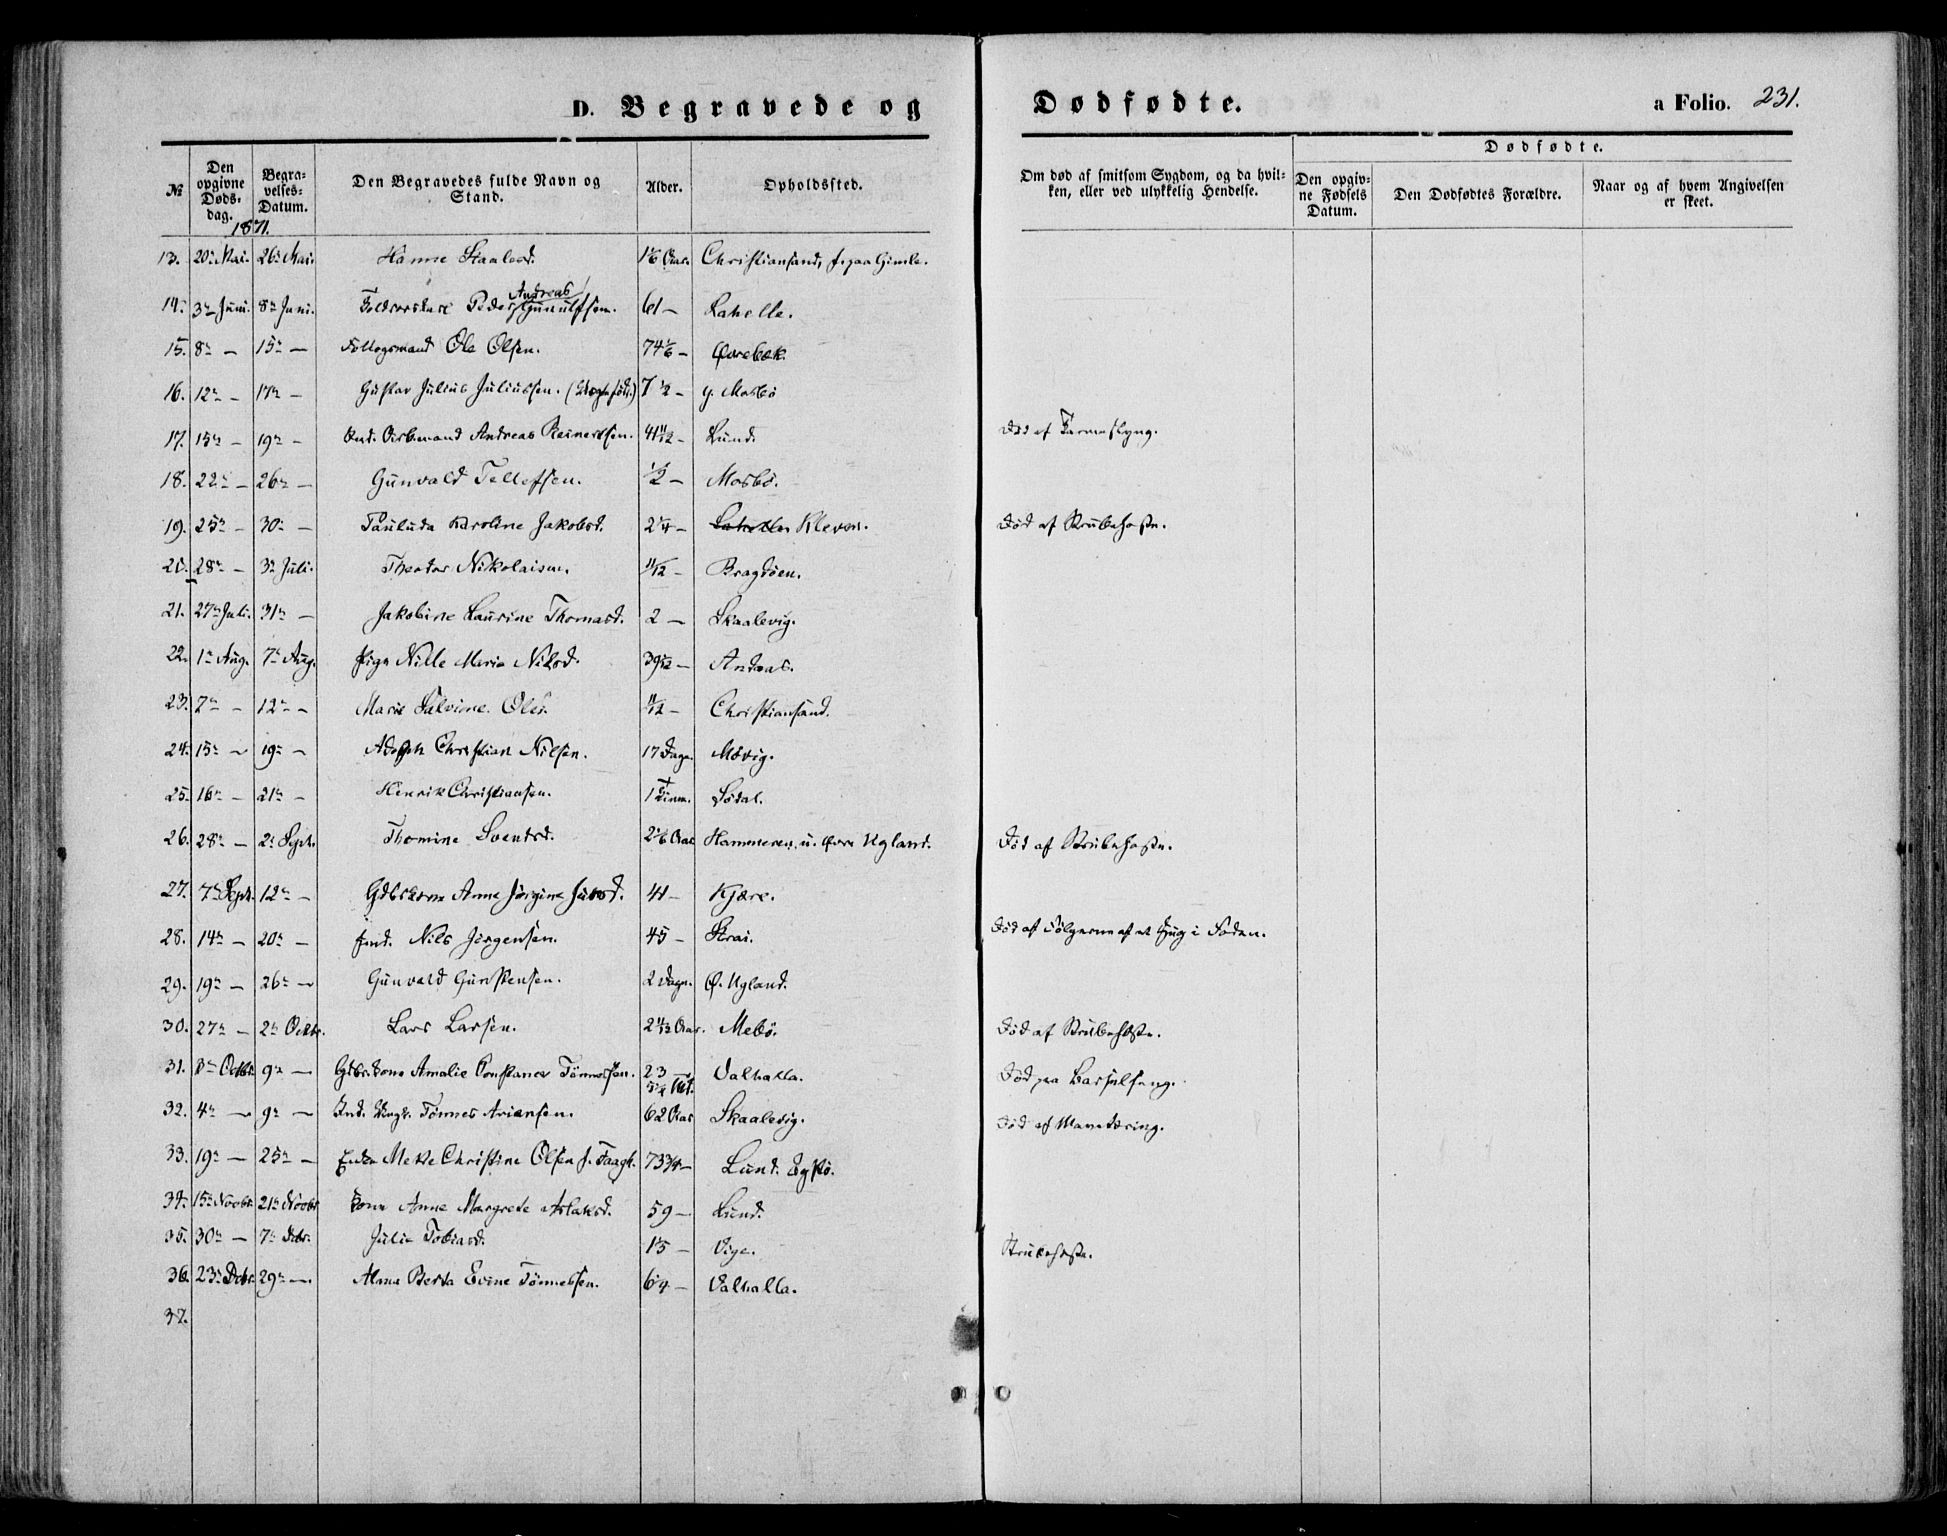 D. Begravede og Dødfødte. a Folio. 231.
№ Den opgivne Døds-dag. Begra-velses-Datum. Den Begravedes fulde Navn og Stand. Alder. Opholdssted. Om død af smitsom Sygdom, og da hvil-ken, eller ved ulykkelig Hendelse. Dødfødte.
Den opgiv-ne Fødsels Datum. Den Dødfødtes Forældre. Naar og af hvem Angivelsen er skeet.
1871.
13. 20de Mai. 26de Mai. Hanne 1 1/6 Aar. Christiansand,
14. 3de Juni. 8de Juni. Peder Andreas Gunulfsen. 61 — Lahelle.
15. 8de — 15de — Ole Olsen. 74 1/6 — Øvrebæk
16. 12te — 17de — Gustav Julius Juliussen. 7 1/2 — y. Mosbø
17. 15de — 19de — Andreas Reinertsen. 41 11/12 — Lund. Død af
18. 22de — 26de — Gunvald Tellefsen. 1/2 — Mosbø.
19. 25de — 30te — Karoline Jakobsd. 2 1/4 — Lahelle. Kleven. Død af Strubehoste.
20. 28de — 3de Juli. Theodor Nikolaisen. 11/12 — Bragdøen.
21. 27de Juli. 31te — Jakobine Laurine Thomasd. 2 — Skaalevig.
22. 1ste Aug. 7de Aug. Pige Nille Marie Nilsd. Andaas.
23. 7de — 12te — Marie Salvine Olsd. 11/12 — Christiansand.
24. 15de — 19de — Adolph Christian Nilsen. 17 Dage. Møvig.
25. 16de — 21de — Henrik Christiansen. 1 Time. Sødal.
26. 28de — 2de Septr. Thomine Svendsd. 2 1/6 Aar Hammeren u. Øvre Ugland. Død af Strubehoste.
27. 7de Septr. 12te — Anne Jørgine 41 — Kjære.
28. 14de — 20de — Nils Jørgensen. 45 — Strai. Død af Følgerne af et Hug i Foden.
29. 19de — 26de — Gunvald Gunstensen. 2 Dage. Ø. Ugland.
30. 27de — 2de Octbr. Lars Larsen. 2 11/12 Aar. Mebø. Død af Strubehoste.
31. 3de Octbr. 9de — Amalie Constance Tønnessen. 23 Valhalla. Død paa Barselseng.
32. 4de — 9de — Tønnes Ariansen. 62 Aar Skaalevig. Død af Mavetæring.
33. 19de — 25de — Mette Christine Olsen f. 73 3/4 — Lund. Egstø.
34. 15de Novbr. 21de Novbr. Kone Anne Margrete Aslaksd. 59 — Lund.
35. 30te — 7de Debr. Julie Tobiasd. Vige. Strubehoste.
36. 23de Debr. 29de — Berta Evine Tønnessen. 6 1/4 — Valhalla.
37.